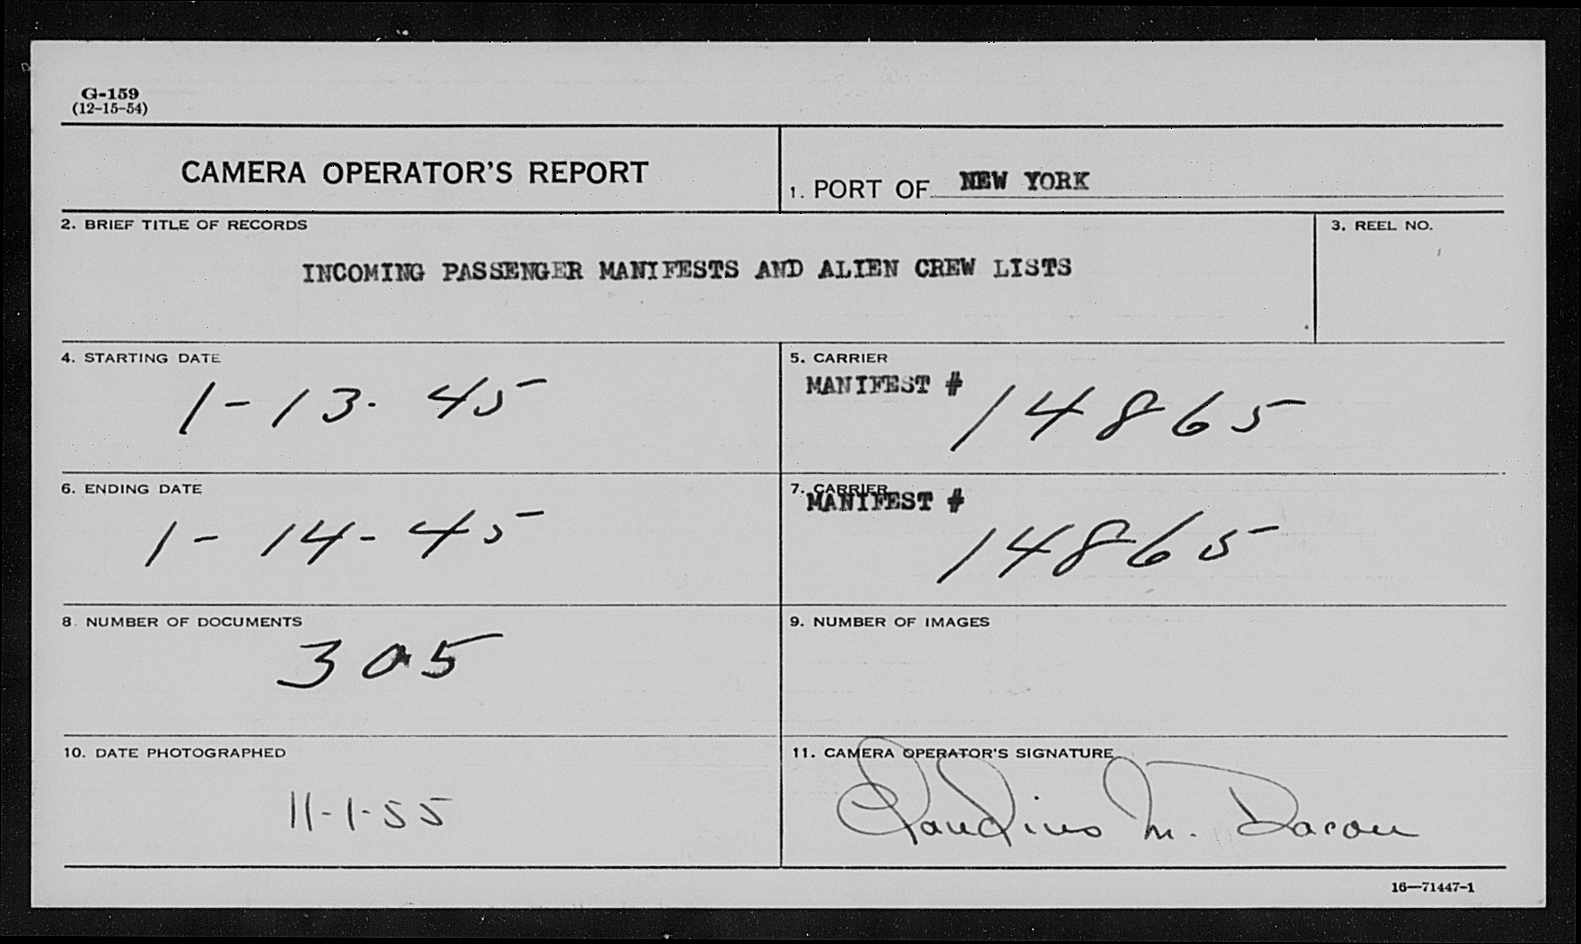 G-159
(12-15-54)
CAMERA OPERATOR'S REPORT
1. PORT OF NEW YORK
2. BRIEF TITLE OF RECORDS
3. REEL NO.
INCOMING PASSENGER MANIFESTS AND ALIEN CREW LISTS
4. STARTING DATE
1-13-45
5. CARRIER
MANIFEST #
14865
6. ENDING DATE
1-14-45
7. CARRIER
MANIFEST #
14865
8. NUMBER OF DOCUMENTS
305
9. NUMBER OF IMAGES
10. DATE PHOTOGRAPHED
11-1-55
11. CAMERA OPERATOR'S SIGNATURE
Claudius M. Dacon
16—71447-1